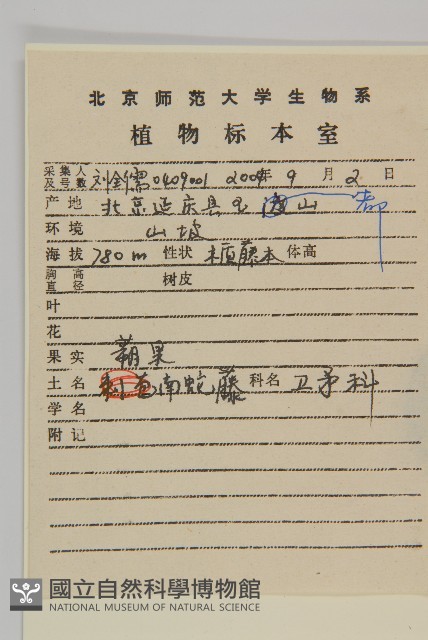 北京师范大学生物系
植物标本室
采集人及号数 刘全儒 0409001 2004年 9 月 2 日
产地 北京延庆县玉渡山
环境 山坡
海拔 780m 性状 木质藤本 体高
胸高直径 树皮
叶
花
果实 蒴果
土名 南蛇藤 科名 卫矛科
学名
附记
國立自然科學博物館
NATIONAL MUSEUM OF NATURAL SCIENCE